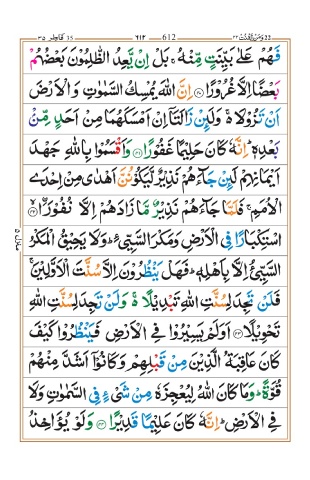 ومن يقنت ٢٢ 612 ٦١٢ فاطر ٣٥
فَهُمْ عَلٰى بَيِّنَتٍ مِّنْهُ ۚ بَلْ اِنْ يَّعِدُ الظّٰلِمُوْنَ بَعْضُهُمْ
بَعْضًا اِلَّا غُرُوْرًا ﴿۴۰﴾ اِنَّ اللّٰهَ يُمْسِكُ السَّمٰوٰتِ وَالْاَرْضَ
اَنْ تَزُوْلَا ۚ وَلَىِٕنْ زَالَتَاۤ اِنْ اَمْسَكَهُمَا مِنْ اَحَدٍ مِّنْۢ
بَعْدِهٖ ؕ اِنَّهٗ كَانَ حَلِيْمًا غَفُوْرًا ﴿۴۱﴾ وَاَقْسَمُوْا بِاللّٰهِ جَهْدَ
اَيْمَانِهِمْ لَىِٕنْ جَآءَهُمْ نَذِيْرٌ لَّيَكُوْنُنَّ اَهْدٰى مِنْ اِحْدَى
الْاُمَمِ ۚ فَلَمَّا جَآءَهُمْ نَذِيْرٌ مَّا زَادَهُمْ اِلَّا نُفُوْرًا ﴿۴۲﴾
اسْتِكْبَارًا فِى الْاَرْضِ وَمَكْرَ السَّيِّئِ ؕ وَلَا يَحِيْقُ الْمَكْرُ
السَّيِّئُ اِلَّا بِاَهْلِهٖ ؕ فَهَلْ يَنْظُرُوْنَ اِلَّا سُنَّتَ الْاَوَّلِيْنَ ۚ
فَلَنْ تَجِدَ لِسُنَّتِ اللّٰهِ تَبْدِيْلًا ۚ وَلَنْ تَجِدَ لِسُنَّتِ اللّٰهِ
تَحْوِيْلًا ﴿۴۳﴾ اَوَلَمْ يَسِيْرُوْا فِى الْاَرْضِ فَيَنْظُرُوْا كَيْفَ
كَانَ عَاقِبَةُ الَّذِيْنَ مِنْ قَبْلِهِمْ وَكَانُوْۤا اَشَدَّ مِنْهُمْ
قُوَّةً ؕ وَمَا كَانَ اللّٰهُ لِيُعْجِزَهٗ مِنْ شَىْءٍ فِى السَّمٰوٰتِ وَلَا
فِى الْاَرْضِ ؕ اِنَّهٗ كَانَ عَلِيْمًا قَدِيْرًا ﴿۴۴﴾ وَلَوْ يُؤَاخِذُ
منزل ٥